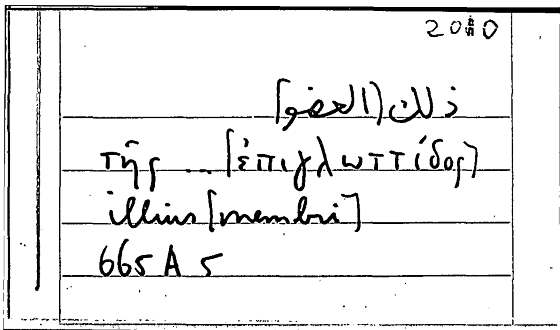 2080
ذلك (العضو]
τῆς ... [ἐπιγλωττίδος]
illius [membri]
665 A 5